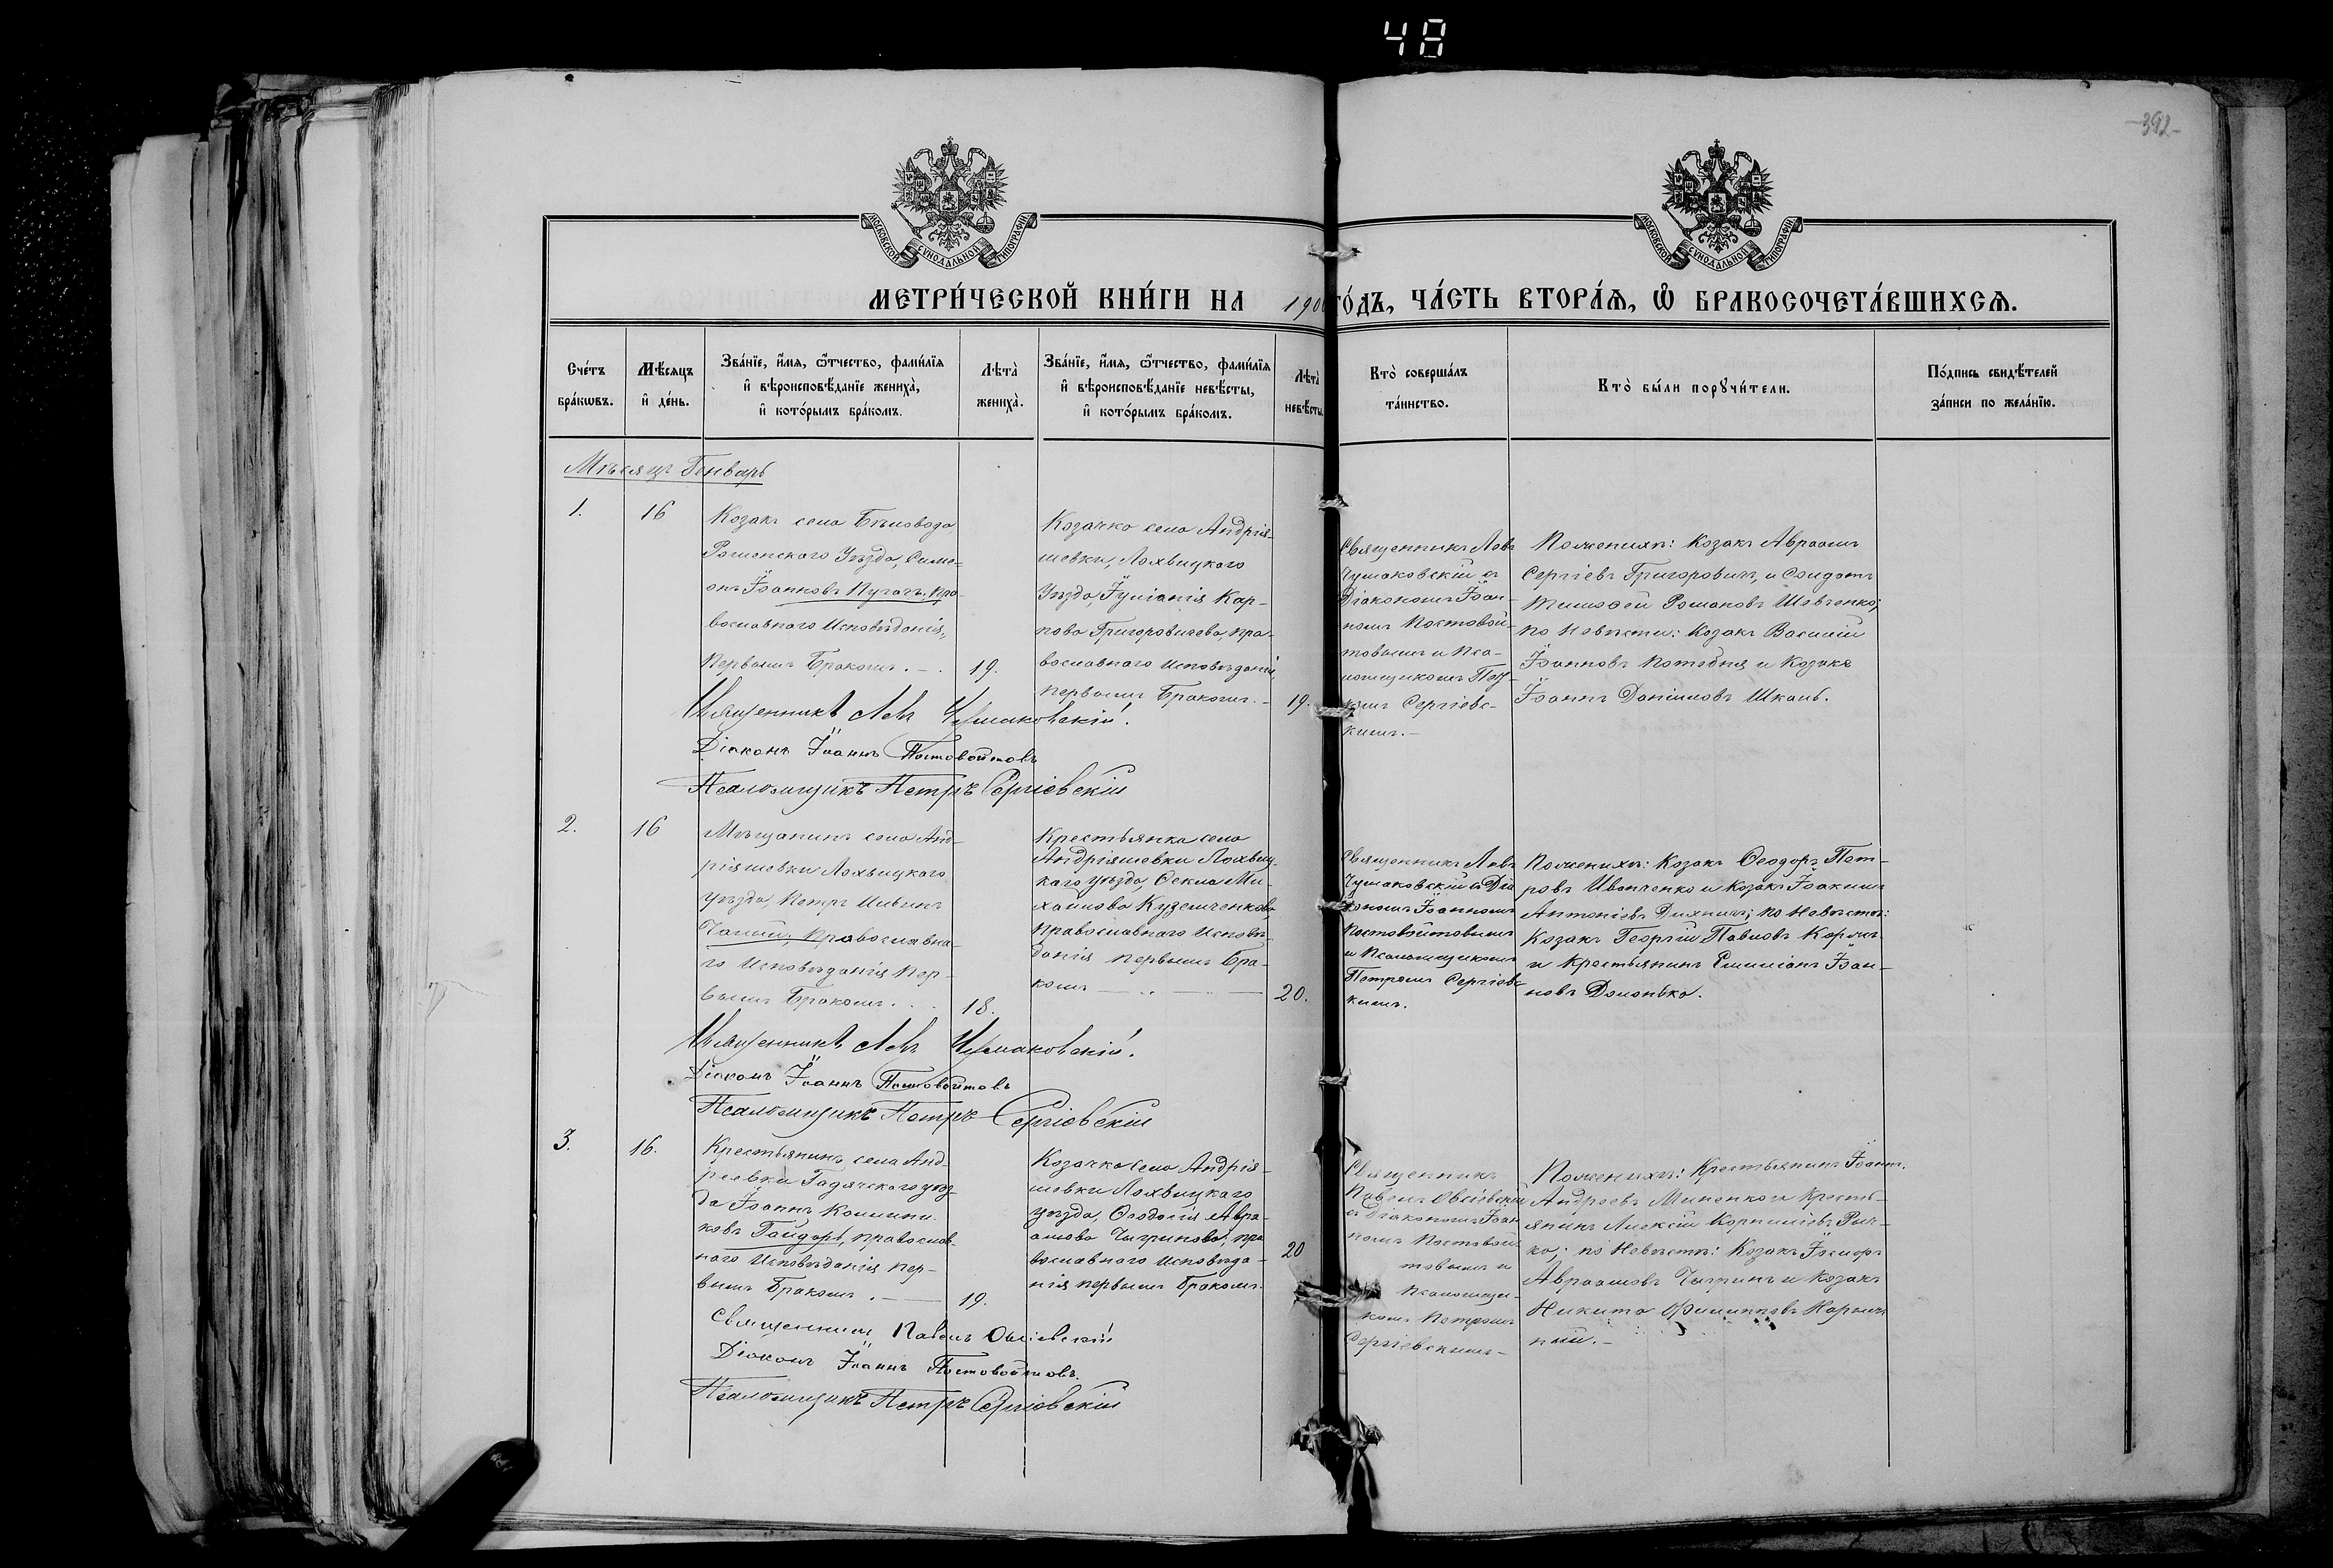 48
392
МОСКОВСКОЙ СУНОДАЛЬНОЙ ТИПОГРАФІИ
МОСКОВСКОЙ СУНОДАЛЬНОЙ ТИПОГРАФІИ
МЕТРИ́ЧЕСКОЙ КНИ́ГИ НА 190
ГО́ДЪ, ЧА́СТЬ ВТОРА́Я, Ѡ҆ БРАКОСОЧЕТА́ВШИХСЯ.
Сче́тъ бра́кѡвъ.
Мѣ́сяцъ и҆ де́нь.
Зва́нїе, и҆́мя, ѻ҆́тчество, фами́лїя
и҆ вѣроисповѣ́данїе жениха̀,
и҆ кото́рымъ бра́комъ.
Лѣта̀ жениха̀.
Зва́нїе, и҆́мя, ѻ҆́тчество, фами́лїя
и҆ вѣроисповѣ́данїе невѣ́сты,
и҆ кото́рымъ бра́комъ.
Лѣта̀ невѣ́сты.
Кто̀ соверша́лъ
та́инство.
Кто̀ бы́ли порꙋчи́тели.
По́дпись свидѣ́телей
за́писи по жела́нїю.
Мѣсяцъ Генварь
1.
16
Козакъ села Бѣловода
Роменского Уѣзда, Симе-
онъ Іоанновъ Пугачъ, пра-
вославнаго Исповѣданія,
первымъ Бракомъ. –
19.
Козачка села Андрія-
шевки, Лохвицкого
Уѣзда, Іуліанія Кар-
пова Григоровичева, пра-
вославнаго Исповѣданія,
первымъ Бракомъ. –
19.
Священникъ Левъ
Чумаковскій съ
Діакономъ Іоан-
номъ Постовой-
товымъ и Пса-
ломщикомъ Пет-
ромъ Сергіевс-
кимъ. –
По женихѣ: Козакъ Авраамъ
Сергіевъ Григоровичъ, и Солдатъ
Тимоѳей Романовъ Шевченко;
по Невѣстѣ: Козакъ Василій
Іоанновъ Потебня и Козакъ
Іоаннъ Даніиловъ Шкаль.
Священникъ Левъ Чумаковскій.
Діаконъ Іоаннъ Постовойтовъ
Псаломщикъ Петръ Сергіевскій
2.
16
Мѣщанинъ села Анд-
ріяшевки Лохвицкого
уѣзда, Петръ Ильинъ
Чалый, православна-
го Исповѣданія пер-
вымъ Бракомъ.
18.
Крестьянка села
Андріяшевки Лохвиц-
кого уѣзда, Ѳекла Ми-
хайлова Куземченкова,
православнаго Исповѣ-
данія первымъ Бра-
комъ
20.
Священникъ Левъ
Чумаковскій съ Діа
кономъ Іоанномъ
Постовойтовымъ
и Псаломщикомъ
Петромъ Сергіевс
кимъ.
По женихѣ: Козакъ Ѳеодоръ Пет-
ровъ Иванченко и Козакъ Іоакимъ
Антоніевъ Дихничъ; по Невѣстѣ:
Козакъ Георгій Павловъ Коржъ
и Крестьянинъ Емиліанъ Іоан-
новъ Доманько.
Священникъ Левъ Чумаковскій.
Діаконъ Іоаннъ Постовойтовъ
Псаломщикъ Петръ Сергіевскій
3.
16.
Крестьянинъ села Анд-
реевки Гадячского уѣз-
да Іоаннъ Каллини-
ковъ Гайдарь, православ-
наго Исповѣданія пер-
вымъ Бракомъ. –
19.
Козачка села Андрія-
шевки Лохвицкого
уѣзда, Ѳеодосія Авра-
амова Чигринова, пра
вославнаго Исповѣда-
нія первымъ Бракомъ.
20
Священникъ
Павелъ
съ Діакономъ Іоан
номъ Постовой
товымъ и
Псаломщи-
комъ Петромъ
Сергіевскимъ –
По женихѣ: Крестьянинъ Іоаннъ
Андреевъ Миненко и Кресть-
янинъ Алексій Корниліевъ Рич-
ко; по Невѣстѣ: Козакъ Іосифъ
Авраамовъ Чигринъ и Козакъ
Никита Филипповъ
ный. –
Священникъ Павелъ
Діаконъ Іоаннъ Постовойтовъ.
Псаломщикъ Петръ Сергіевскій